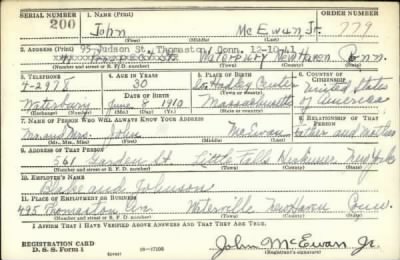 SERIAL NUMBER 1. NAME (Print) ORDER NUMBER
200 John McEwan Jr. 779
(First) (Middle) (Last)
95 Judson St., Thomaston, Conn. 12-10-41
2. ADDRESS (Print)
Prospect St. Waterbury New Haven Conn.
(Number and street or R. F. D. number) (Town) (County) (State)
3. TELEPHONE 4. AGE IN YEARS 5. PLACE OF BIRTH 6. COUNTRY OF CITIZENSHIP
4-2978 30 So. Hadley Center United States
DATE OF BIRTH (Town or county)
Waterbury June 8 1910 Massachusetts of America
(Exchange) (Number) (Mo.) (Day) (Yr.) (State or country)
7. NAME OF PERSON WHO WILL ALWAYS KNOW YOUR ADDRESS 8. RELATIONSHIP OF THAT PERSON
Mr. and Mrs. John McEwan Father and Mother
(Mr., Mrs., Miss) (First) (Middle) (Last)
9. ADDRESS OF THAT PERSON
561 Garden St. Little Falls Herkimer New York
(Number and street or R. F. D. number) (Town) (County) (State)
10. EMPLOYER'S NAME
Blake and Johnson
11. PLACE OF EMPLOYMENT OR BUSINESS
495 Thomaston Av. Waterville New Haven Conn.
(Number and street or R. F. D. number) (Town) (County) (State)
I AFFIRM THAT I HAVE VERIFIED ABOVE ANSWERS AND THAT THEY ARE TRUE.
REGISTRATION CARD
D. S. S. Form 1 16-17105 John McEwan Jr.
(Registrant's signature)